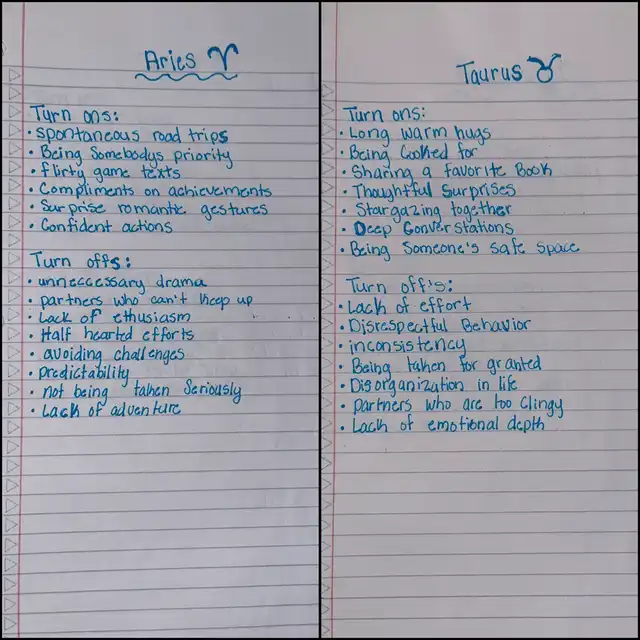 Aries ♈
Turn ons:
• Spontaneous road trips
• Being Somebodys priority
• flirty game texts
• Compliments on achievements
• Surprise romantic gestures
• Confident actions
Turn offs:
• unneccessary drama
• partners who can't keep up
• Lack of ethusiasm
• Half hearted efforts
• avoiding challenges
• predictability
• not being taken Seriously
• Lack of adventure
Taurus ♉
Turn ons:
• Long warm hugs
• Being Cooked for
• Sharing a favorite Book
• Thoughtful Surprises
• Stargazing together
• Deep Converstations
• Being Someone's Safe Space
Turn off's:
• Lack of effort
• Disrespectful Behavior
• inconsistency
• Being taken for granted
• Disorganization in life
• partners who are too Clingy
• Lack of emotional depth